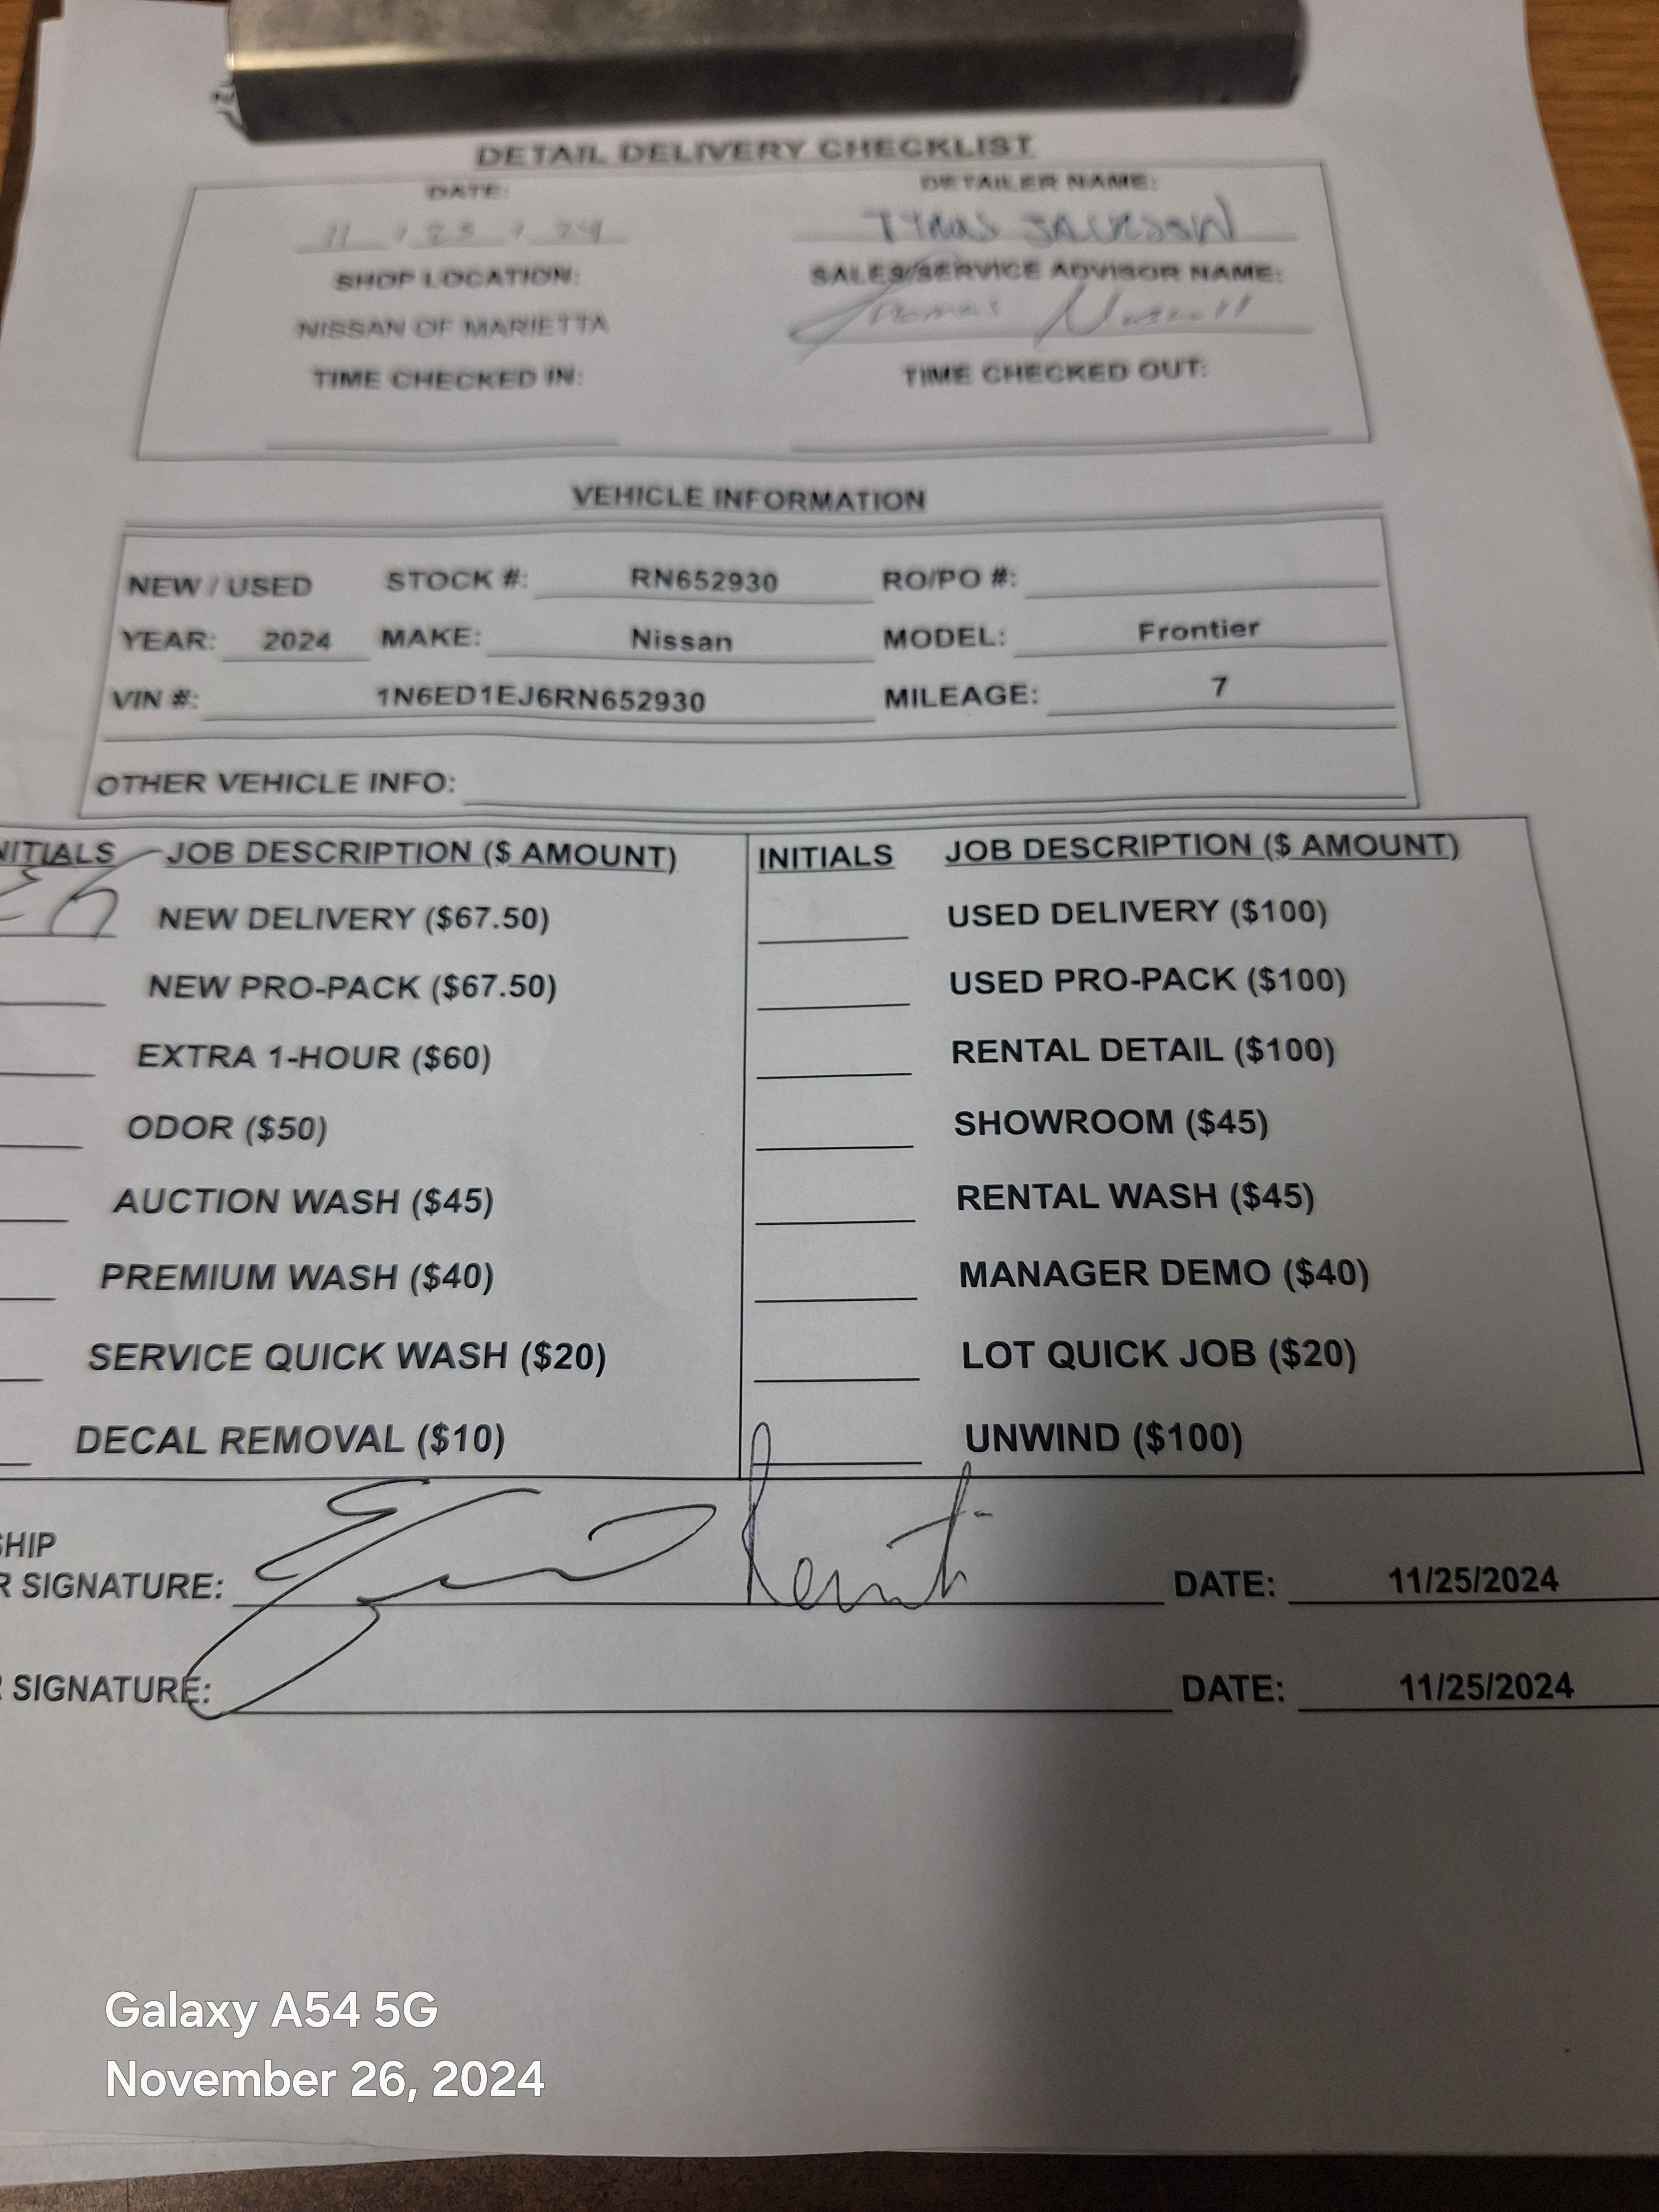 DETAIL DELIVERY CHECKLIST
DATE: DETAILER NAME:
11 / 23 / 24 TYRAS JACKSON
SHOP LOCATION: SALES/SERVICE ADVISOR NAME:
NISSAN OF MARIETTA Thomas
TIME CHECKED IN: TIME CHECKED OUT:
VEHICLE INFORMATION
NEW / USED STOCK #: RN652930 RO/PO #:
YEAR: 2024 MAKE: Nissan MODEL: Frontier
VIN #: 1N6ED1EJ6RN652930 MILEAGE: 7
OTHER VEHICLE INFO:
NITIALS JOB DESCRIPTION ($ AMOUNT) INITIALS JOB DESCRIPTION ($ AMOUNT)
NEW DELIVERY ($67.50) USED DELIVERY ($100)
NEW PRO-PACK ($67.50) USED PRO-PACK ($100)
EXTRA 1-HOUR ($60) RENTAL DETAIL ($100)
ODOR ($50) SHOWROOM ($45)
AUCTION WASH ($45) RENTAL WASH ($45)
PREMIUM WASH ($40) MANAGER DEMO ($40)
SERVICE QUICK WASH ($20) LOT QUICK JOB ($20)
DECAL REMOVAL ($10) UNWIND ($100)
SHIP
R SIGNATURE: DATE: 11/25/2024
R SIGNATURE: DATE: 11/25/2024
Galaxy A54 5G
November 26, 2024